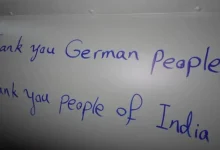 ank you German People
ank you People of India